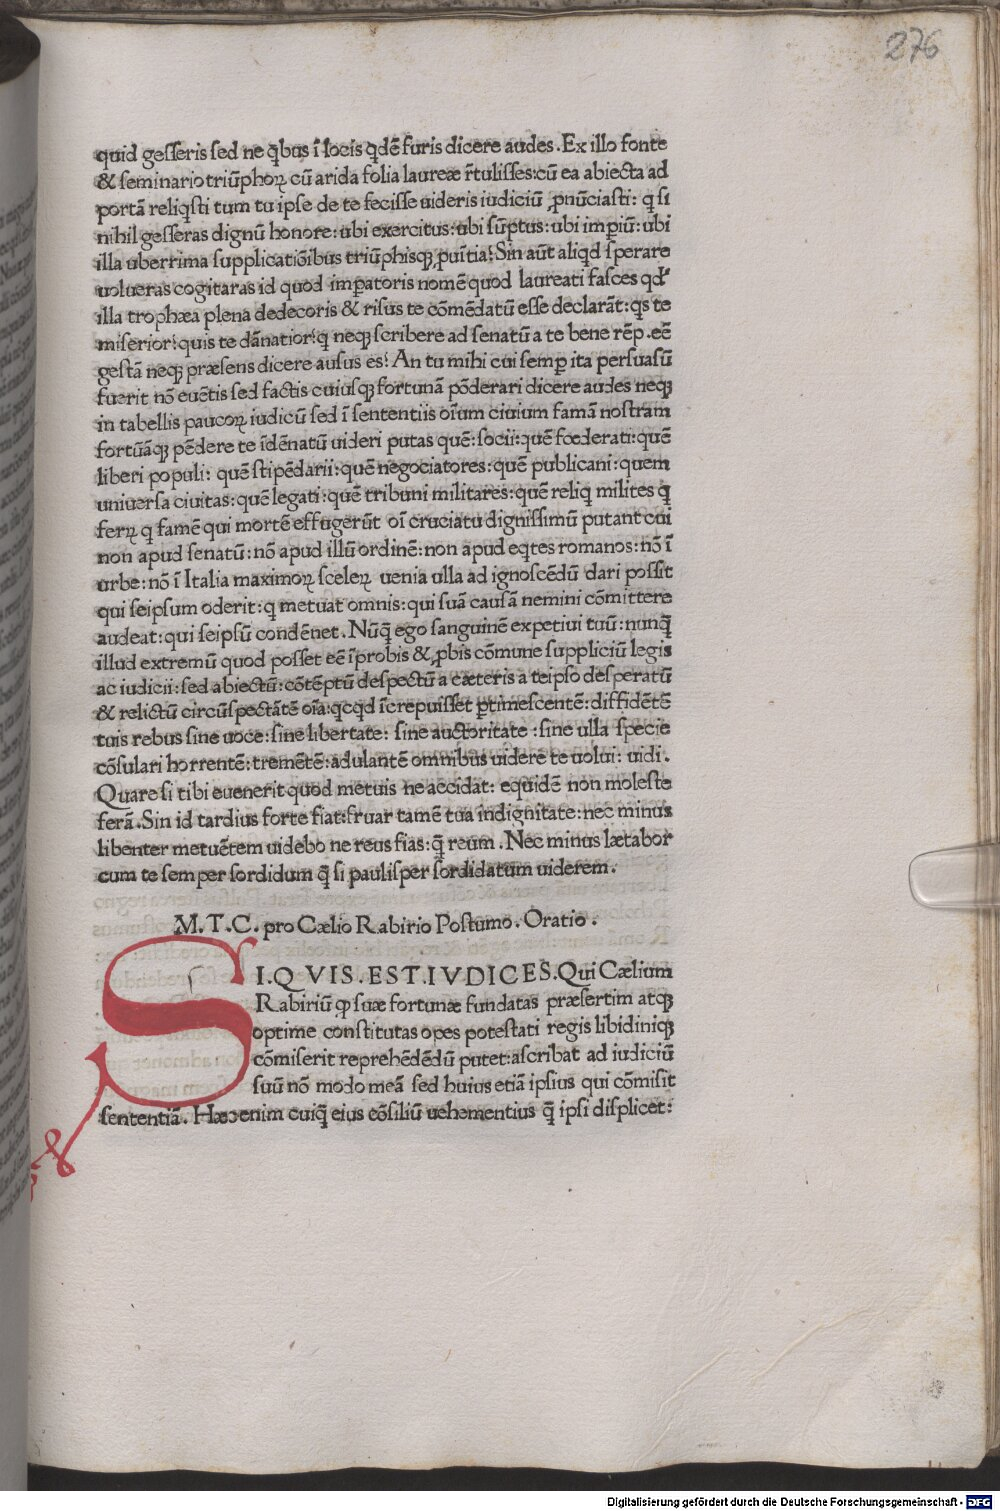 276
quid gesseris sed ne q̄bus ī locis q̇dē furis dicere audes. Ex illo fonte
& seminario triūphoꝝ cū arida folia laureæ r̄tulisses: cū ea abiecta ad
portā reliq̇sti tum tu ipse de te fecisse uideris iudiciū ꝓnūciasti: q̇ si
nihil gesseras dignū honore: ubi exercitus: ubi sūptus: ubi imꝑiū: ubi
illa uberrima supplicatiōibus triūphisqꝫ ꝓuītia? Sin aūt aliq̇d sperare
uolueras cogitaras id quod imꝑatoris nomē quod laureati fasces qđ
illa trophæa plena dedecoris & risus te cōmēdatū esse declarāt: q̇s te
miserior? quis te dānatior? q̇ neqꝫ scribere ad senatū a te bene rēp. eē
gestā neqꝫ præsens dicere ausus es? An tu mihi cui semꝑ ita persuasū
fuerit nō euētis sed factis cuiusqꝫ fortunā pōderari dicere audes neqꝫ
in tabellis paucoꝝ iudicū sed ī sententiis oīum ciuium famā nostram
fortūāqꝫ pēdere te īdēnatū uideri putas quē: socii: quē fœderati: quē
liberi populi: quē stipēdarii: quē negociatores: quē publicani: quem
uniuersa ciuitas: quē legati: quē tribuni militares: quē reliq̇ milites q̇
ferꝝ q̇ famē qui mortē effugerūt oī cruciatu dignissimū putant cui
non apud senatū: nō apud illū ordinē: non apud eq̇tes romanos: nō ī
urbe: nō ī Italia maximoꝝ sceleꝝ uenia ulla ad ignoscēdū dari possit
qui seipsum oderit: q̇ metuat omnis: qui suā causā nemini cōmittere
audeat: qui seipsū condēnet. Nūq̄ ego sanguinē expetiui tuū: nunq̄
illud extremū quod posset eē īprobis & ꝓbis cōmune suppliciū legis
ac iudicii: sed abiectū: cōtēptū despectū a cæteris a teipso desperatū
& relictū circūspectātē oīa: qcq̇d īcrepuisset ꝑtimescentē: diffidētē
tuis rebus sine uoce: sine libertate: sine auctoritate: sine ulla specie
cōsulari horrentē: tremētē: adulantē omnibus uidere te uolui: uidi.
Quare si tibi euenerit quod metuis ne accidat: equidē non moleste
ferā. Sin id tardius forte fiat: fruar tamē tua indignitate: nec minus
libenter metuētem uidebo ne reus fias: q̄ reum. Nec minus lætabor
cum te semper sordidum q̄ si paulisper sordidatum uiderem.
M. T. C. pro Cælio Rabirio Postumo. Oratio.
SI.QVIS.EST.IVDICES. Qui Cælium
Rabiriū ꝙ suæ fortunæ fundatas præsertim atqꝫ
optime constitutas opes potestati regis libidiniqꝫ
cōmiserit reprehēdēdū putet: ascribat ad iudiciū
suū nō modo meā sed huius etiā ipsius qui cōmisit
sententiā. Hæc enim cuiq̄ eius cōsiliū uehementius q̄ ipsi displicet:
Digitalisierung gefördert durch die Deutsche Forschungsgemeinschaft - DFG